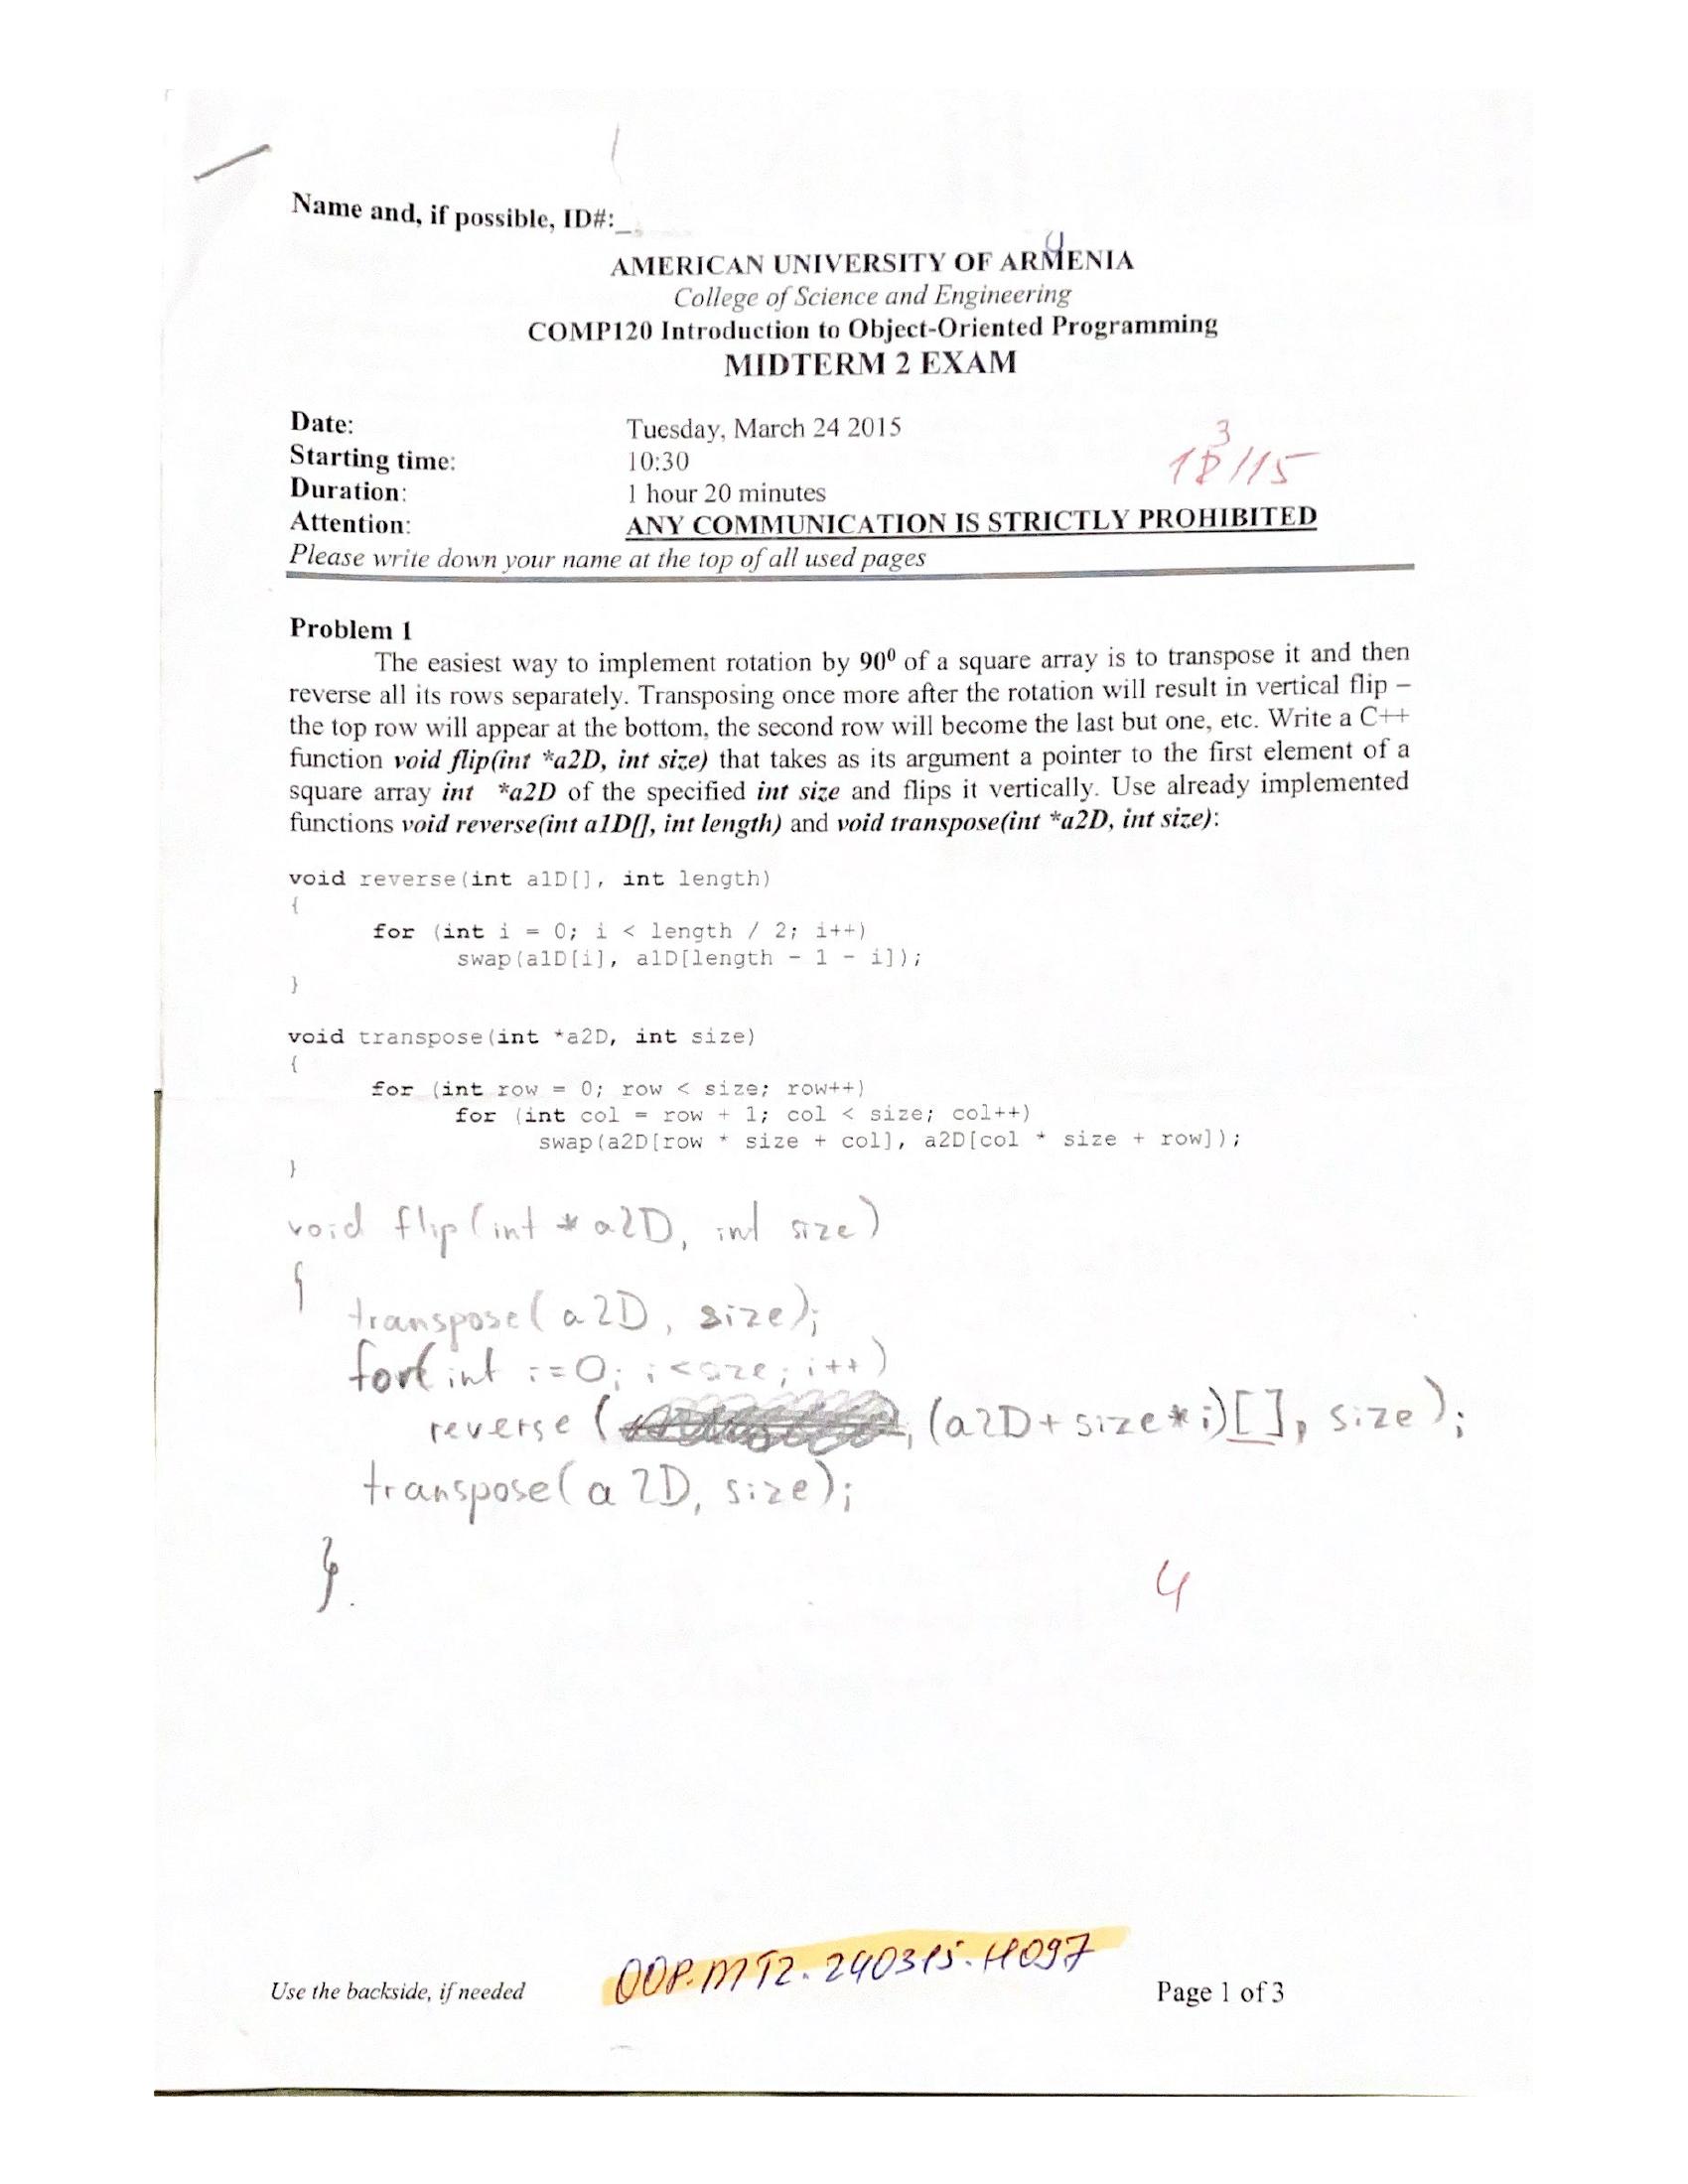 Name and, if possible, ID#:_
AMERICAN UNIVERSITY OF ARMENIA
College of Science and Engineering
COMP120 Introduction to Object-Oriented Programming
MIDTERM 2 EXAM
Date: Tuesday, March 24 2015
3
Starting time: 10:30
/15
Duration: 1 hour 20 minutes
Attention: ANY COMMUNICATION IS STRICTLY PROHIBITED
Please write down your name at the top of all used pages
Problem 1
The easiest way to implement rotation by 90⁰ of a square array is to transpose it and then
reverse all its rows separately. Transposing once more after the rotation will result in vertical flip –
the top row will appear at the bottom, the second row will become the last but one, etc. Write a C++
function void flip(int *a2D, int size) that takes as its argument a pointer to the first element of a
square array int *a2D of the specified int size and flips it vertically. Use already implemented
functions void reverse(int a1D[], int length) and void transpose(int *a2D, int size):
void reverse(int a1D[], int length)
{
for (int i = 0; i < length / 2; i++)
swap(a1D[i], a1D[length - 1 - i]);
}
void transpose(int *a2D, int size)
{
for (int row = 0; row < size; row++)
for (int col = row + 1; col < size; col++)
swap(a2D[row * size + col], a2D[col * size + row]);
}
void flip(int * a2D, int size)
{
transpose( a2D, size);
for(int i=0; i<size; i++)
reverse ( , (a2D+size*i)[], size);
transpose( a2D, size);
}.
4
Use the backside, if needed
OOP.MT2.240315.H097
Page 1 of 3